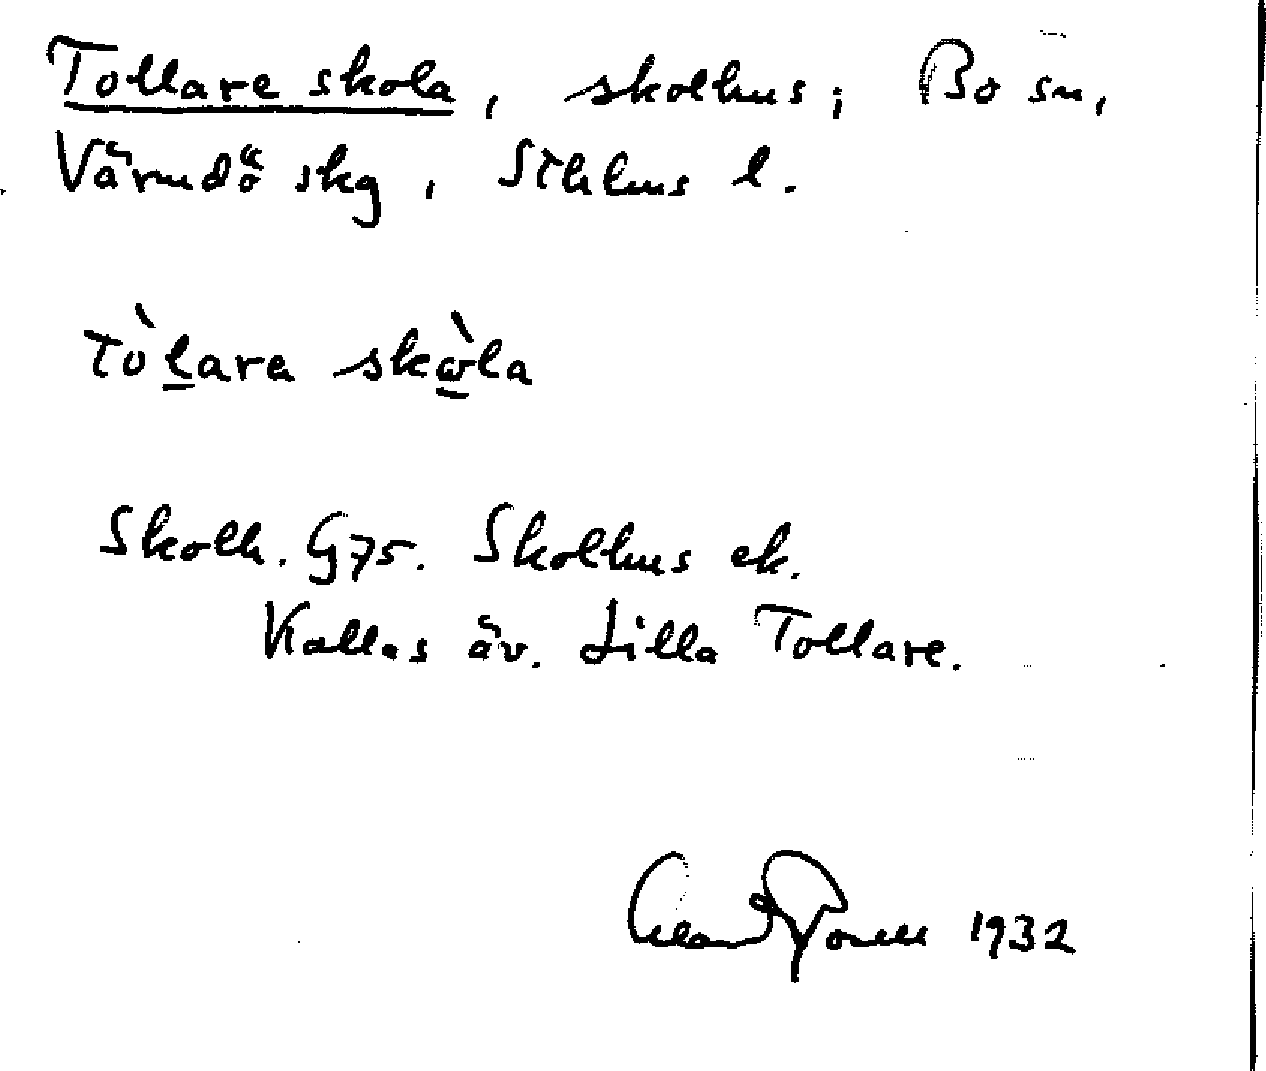 Tollare skola, skolhus; Bo sn,
Värmdö skg, Sthlms l.
Tòlara skòla
Skolh. G75. Skolhus ek.
Kallas äv. Lilla Tollare.
1932